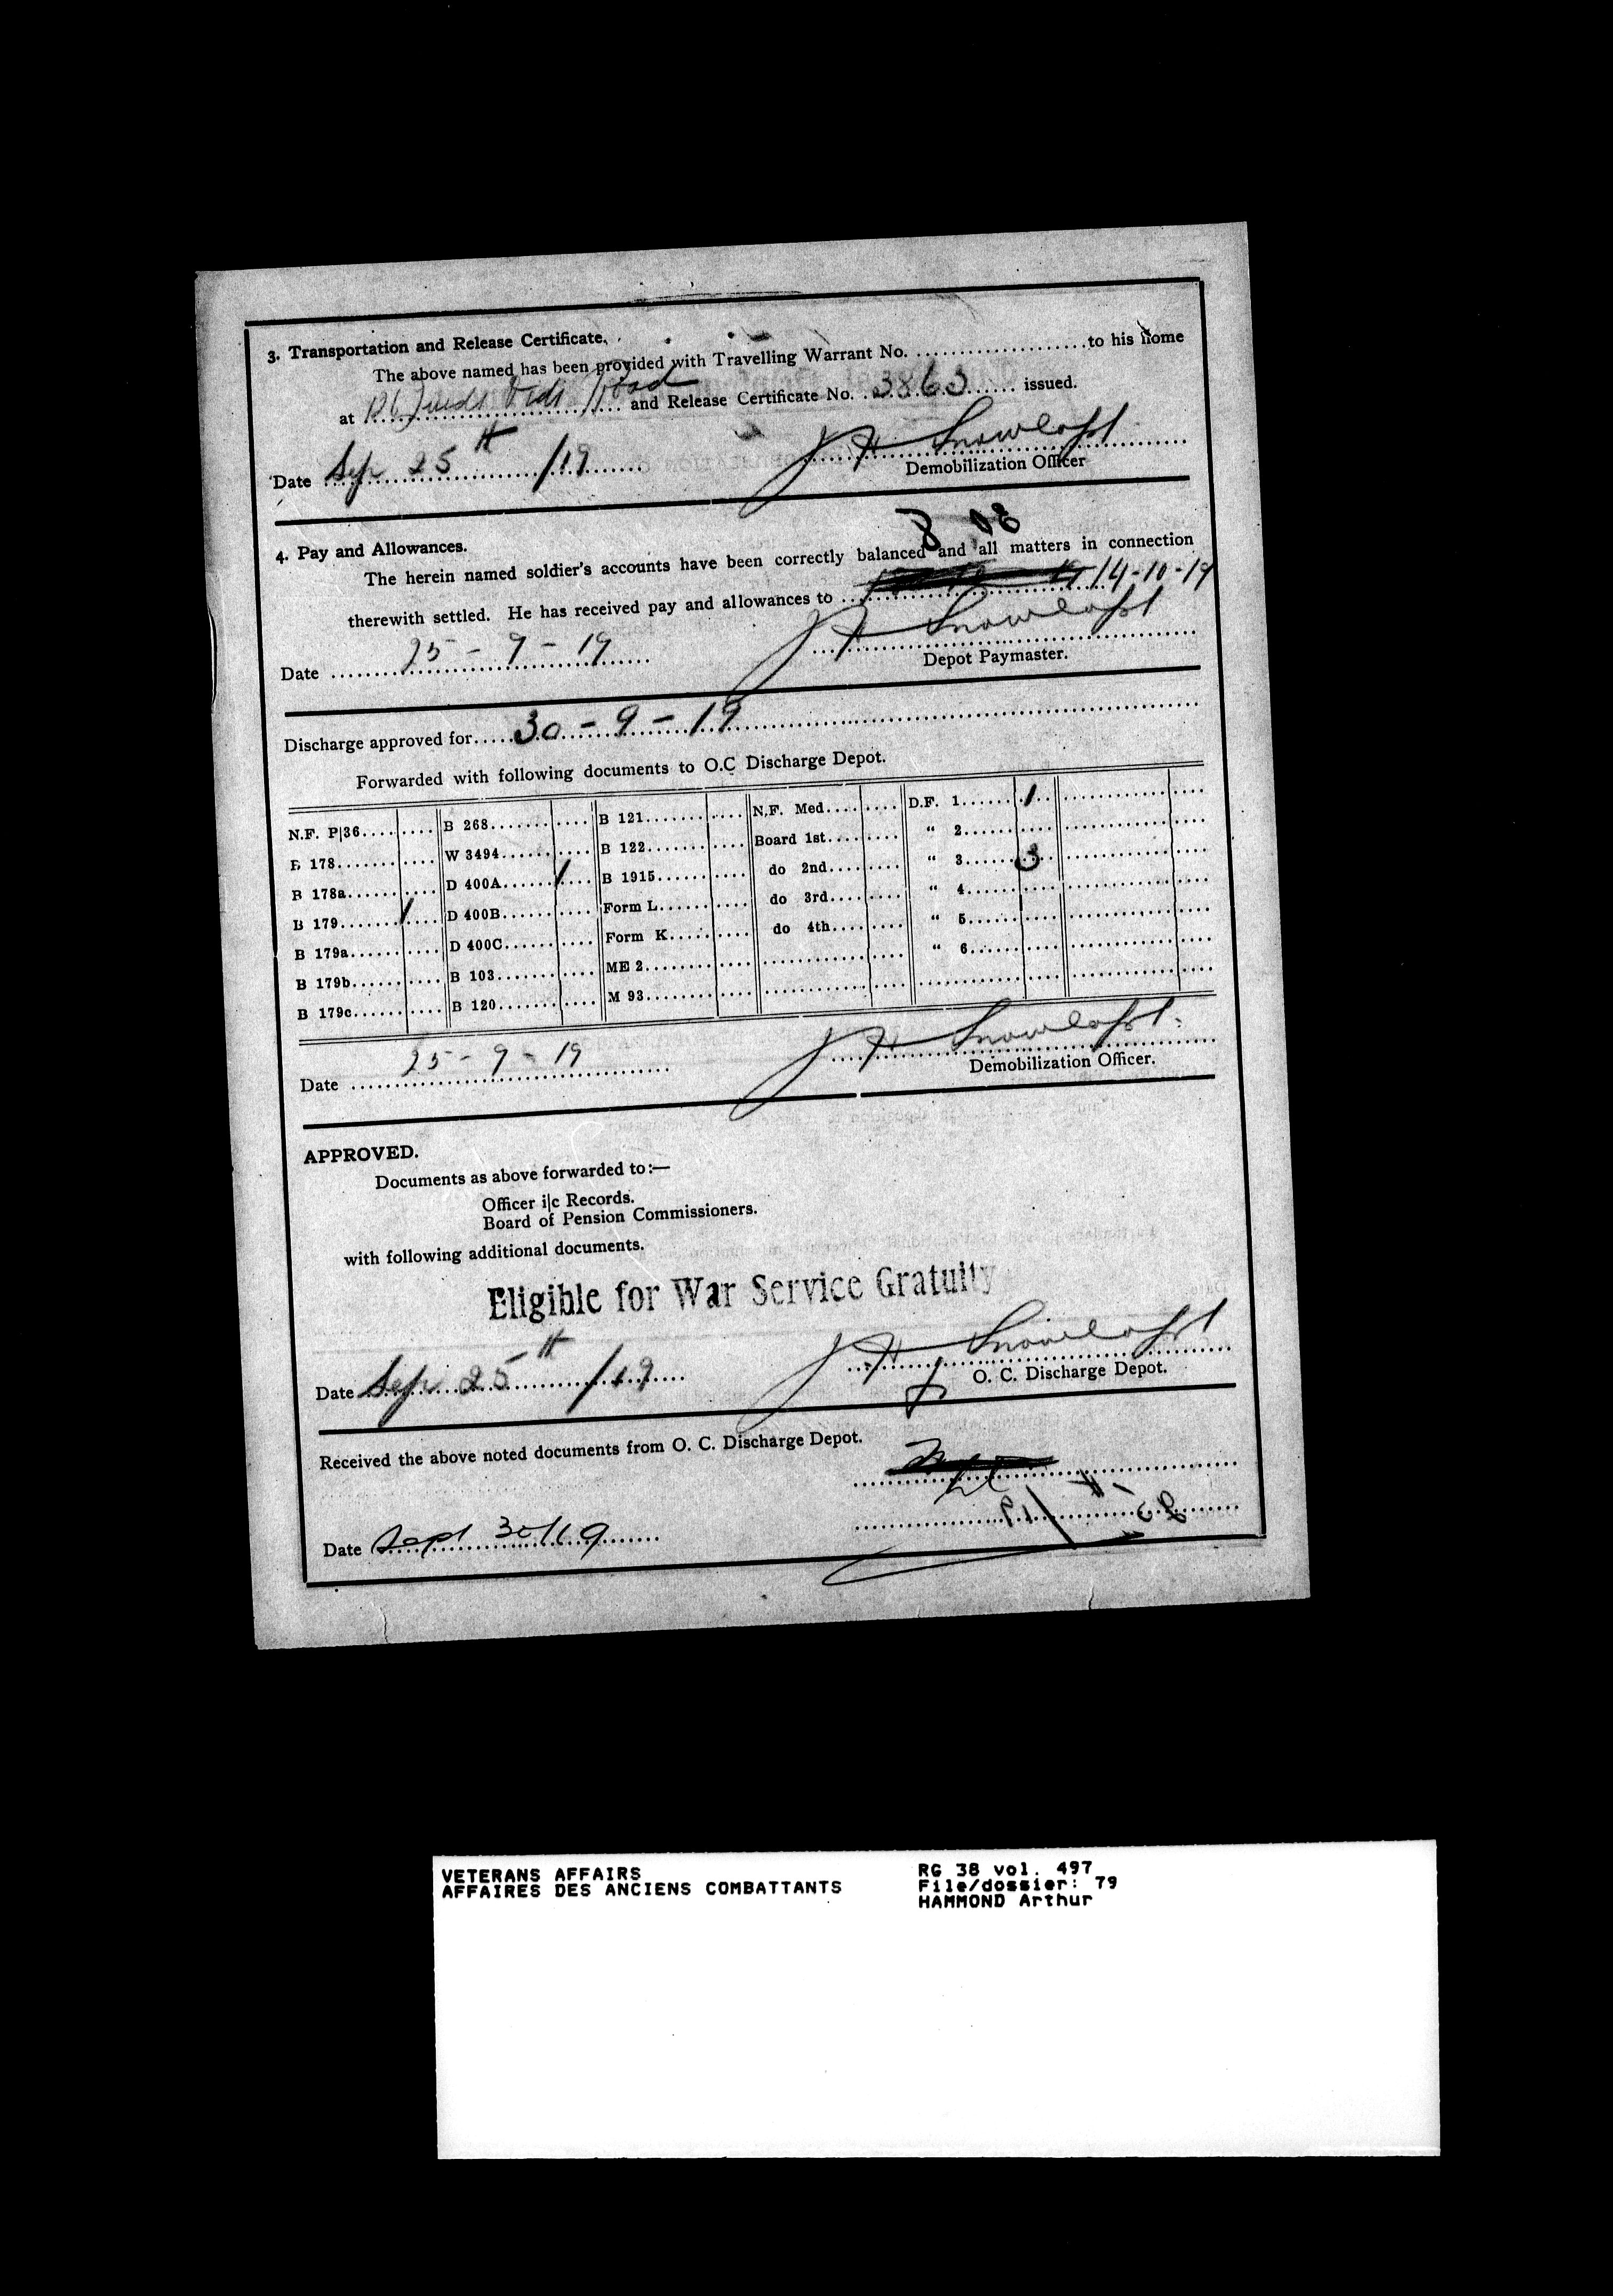 3. Transportation and Release Certificate.
The above named has been provided with Travelling Warrant No. .................... to his home
at ........ Vidi Road ........ and Release Certificate No. 3863 ...... issued.
Date Sep 25th /19
Demobilization Officer
4. Pay and Allowances.
The herein named soldier's accounts have been correctly balanced and all matters in connection
therewith settled. He has received pay and allowances to .......... 14-10-19
Date 25 - 9 - 19
Depot Paymaster.
Discharge approved for ..... 30 - 9 - 19
Forwarded with following documents to O.C Discharge Depot.
N.F. P|36 B 268 B 121 N.F. Med. D.F. 1 /
B 178 W 3494 B 122 Board 1st " 2
B 178a D 400A / B 1915 do 2nd " 3 3
B 179 / D 400B Form L do 3rd " 4
B 179a D 400C Form K do 4th " 5
B 179b B 103 ME 2 " 6
B 179c B 120 M 93
Date 25 - 9 - 19
Demobilization Officer.
APPROVED.
Documents as above forwarded to:—
Officer i|c Records.
Board of Pension Commissioners.
with following additional documents.
Eligible for War Service Gratuity
Date Sep 25th /19
O. C. Discharge Depot.
Received the above noted documents from O. C. Discharge Depot.
Date Sept 30/19
VETERANS AFFAIRS
AFFAIRES DES ANCIENS COMBATTANTS
RG 38 vol. 497
File/dossier: 79
HAMMOND Arthur